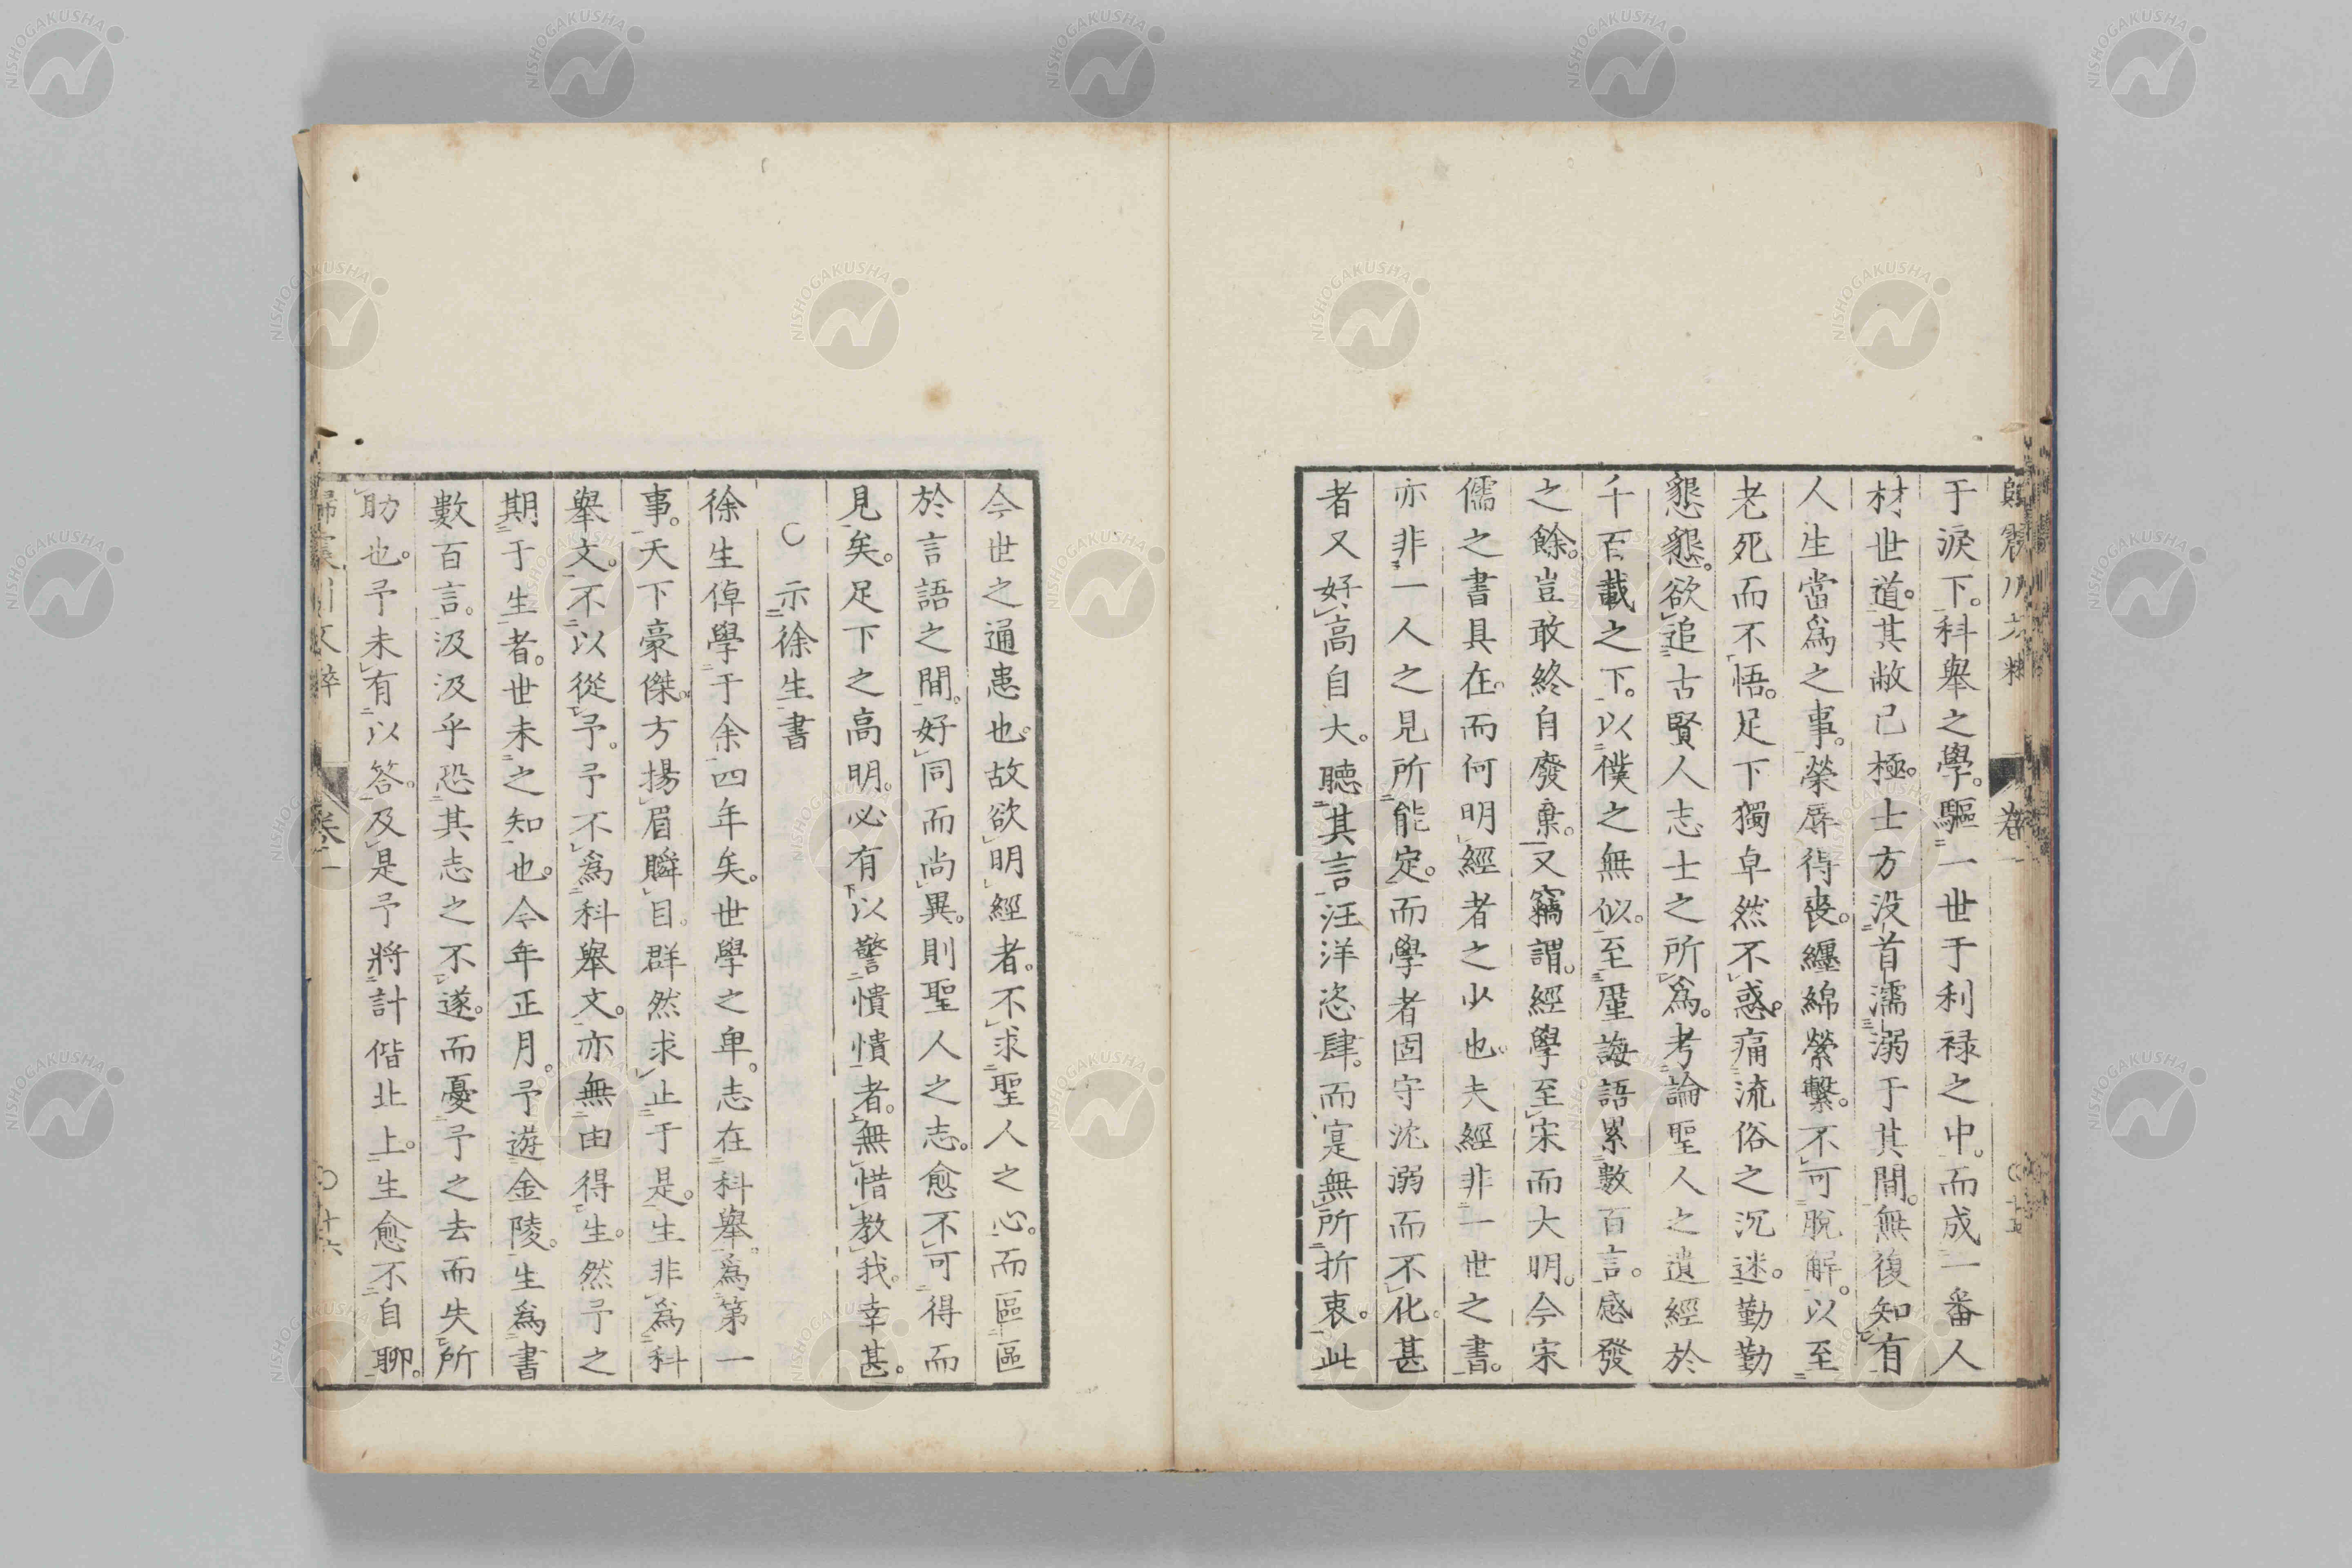 于淚下。科舉之學。驅一世于利禄之中。而成一番人
材世道。其敝已極。士方没首濡溺于其間。無復知有
人生當爲之事。榮辱得喪。纏綿縈繫。不可脫解。以至
老死而不悟。足下獨卓然不惑。痛流俗之沉迷。勤勤
懇懇。欲追古賢人志士之所爲。考論聖人之遺經於
千百載之下。以僕之無似。至厪誨語累數百言。感發
之餘。豈敢終自廢棄。又竊謂。經學至宋而大明。今宋
儒之書具在。而何明經者之少也。夫經非一世之書。
亦非一人之見所能定。而學者固守沈溺而不化。甚
者又好高自大。聽其言汪洋恣肆。而寔無所折衷。此
今世之通患也。故欲明經者。不求聖人之心。而區區
於言語之間。好同而尚異。則聖人之志。愈不可得而
見矣。足下之高明。必有以警憒憒者。無惜教我。幸甚。
示徐生書
徐生倬學于余四年矣。世學之卑。志在科舉。爲第一
事。天下豪傑。方揚眉瞬目。群然求止于是。生非爲科
舉文。不以從予。予不爲科舉文。亦無由得生。然予之
期于生者。世未之知也。今年正月。予遊金陵。生爲書
數百言。汲汲乎恐其志之不遂。而憂予之去而失所
助也。予未有以答。及是予將計偕北上。生愈不自聊。
歸震川文粹 卷一 〇十六